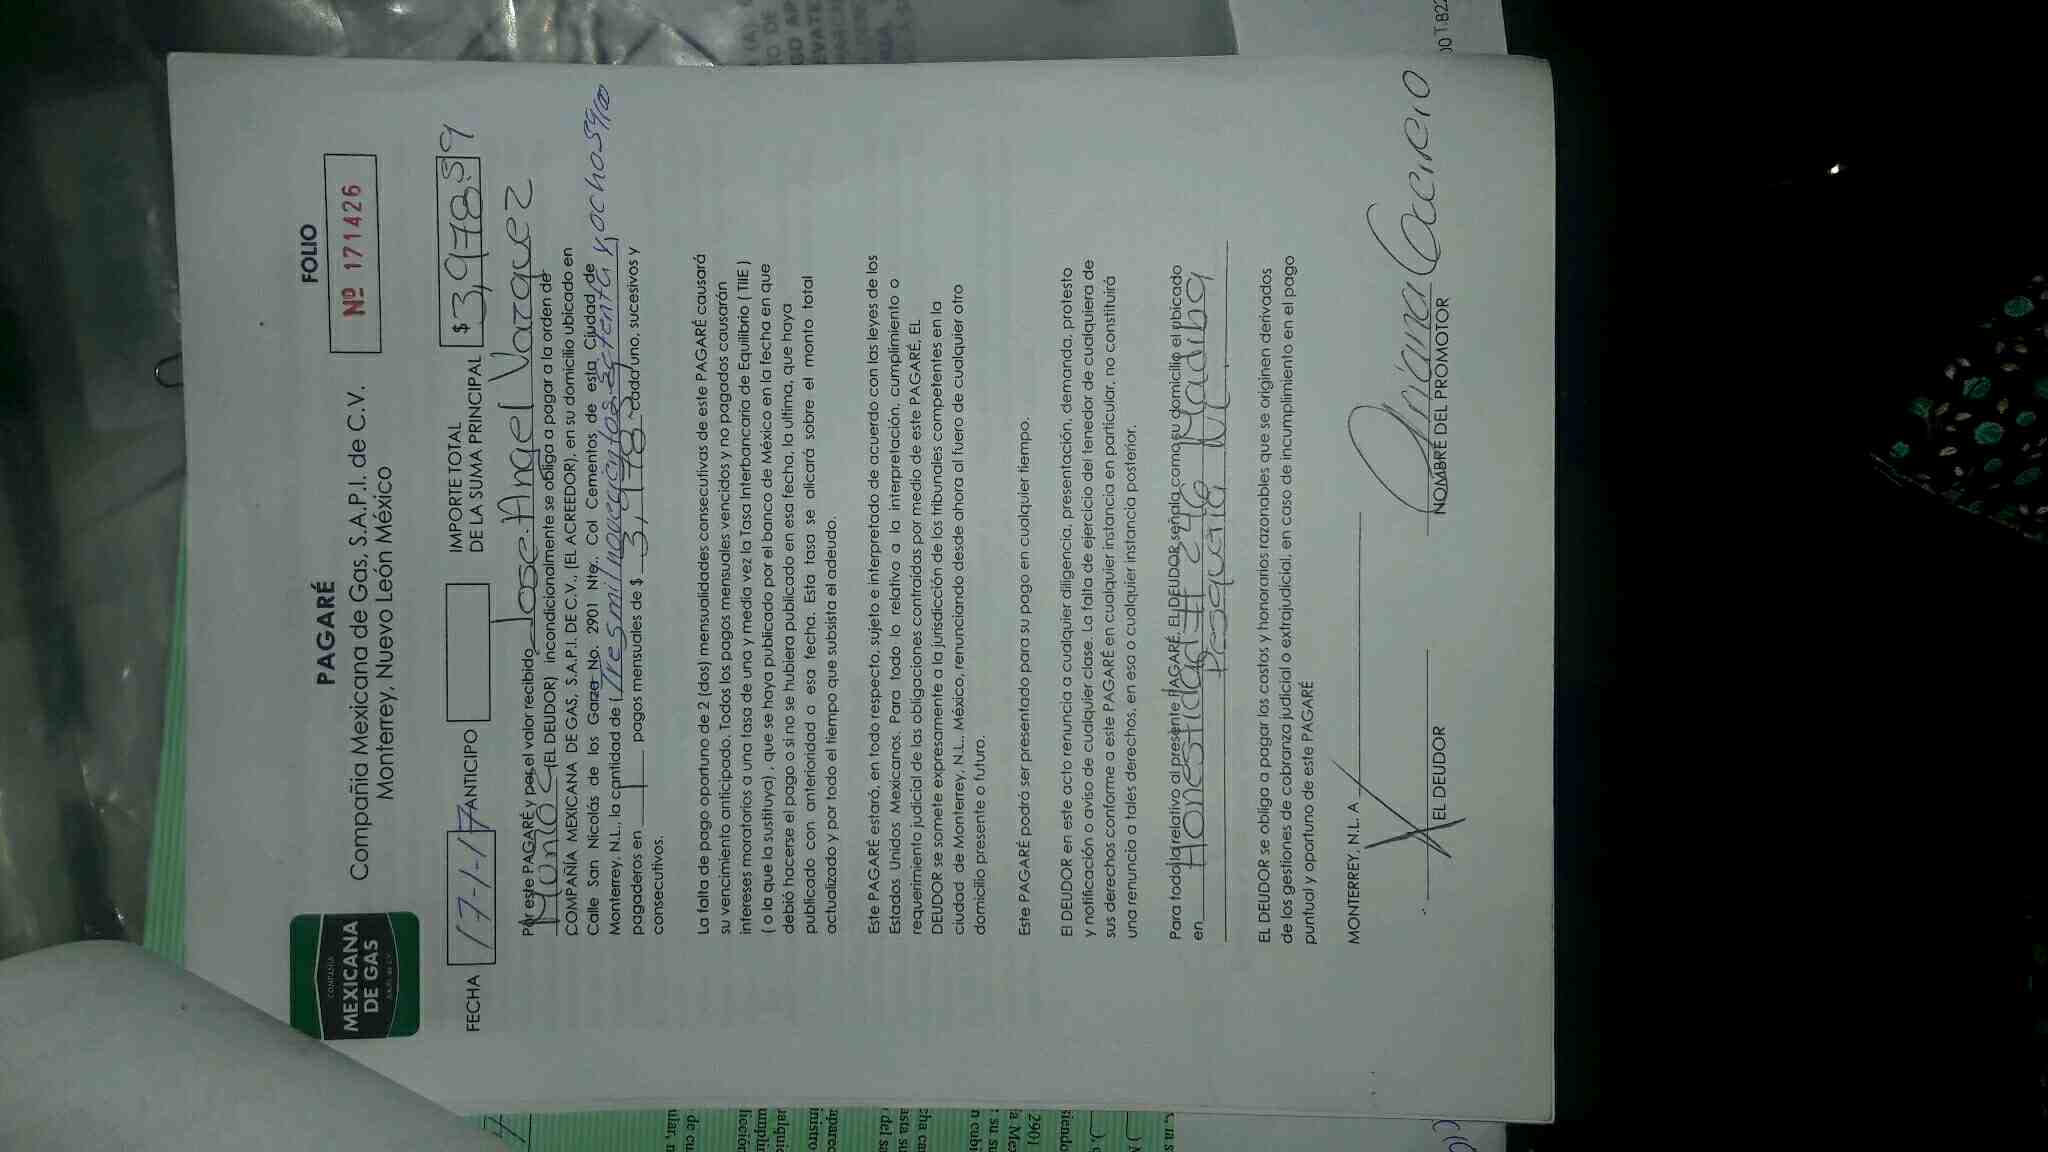 COMPAÑÍA
MEXICANA
DE GAS
PAGARÉ
Compañía Mexicana de Gas, S.A.P.I. de C.V.
Monterrey, Nuevo León México
FOLIO
Nº 171426
FECHA 17-1-17 ANTICIPO
IMPORTE TOTAL
DE LA SUMA PRINCIPAL $ 3,978.59
Por este PAGARÉ y por el valor recibido Jose Angel Vazquez
(EL DEUDOR) incondicionalmente se obliga a pagar a la orden de
COMPAÑÍA MEXICANA DE GAS, S.A.P.I. DE C.V., (EL ACREEDOR), en su domicilio ubicado en
Calle San Nicolás de los Garza No. 2901 Nte., Col Cementos de esta Ciudad de
Monterrey, N.L., la cantidad de (Tres mil novecientos setenta y ocho 59/00
pagaderos en 1 pagos mensuales de $ 3,978. cada uno, sucesivos y
consecutivos.
La falta de pago oportuno de 2 (dos) mensualidades consecutivas de este PAGARÉ causará
su vencimiento anticipado. Todos los pagos mensuales vencidos y no pagados causarán
intereses moratorios a una tasa de una y media vez la Tasa Interbancaria de Equilibrio ( TIIE )
( o la que la sustituya) , que se haya publicado por el banco de México en la fecha en que
debió hacerse el pago o si no se hubiera publicado en esa fecha, la ultima, que haya
publicado con anterioridad a esa fecha. Esta tasa se alicará sobre el monto total
actualizado y por todo el tiempo que subsista el adeudo.
Este PAGARÉ estará, en todo respecto, sujeto e interpretado de acuerdo con las leyes de los
Estados Unidos Mexicanos. Para todo lo relativo a la interpretación, cumplimiento o
requerimiento judicial de las obligaciones contraídas por medio de este PAGARÉ, EL
DEUDOR se somete expresamente a la jurisdicción de los tribunales competentes en la
ciudad de Monterrey, N.L., México, renunciando desde ahora al fuero de cualquier otro
domicilio presente o futuro.
Este PAGARÉ podrá ser presentado para su pago en cualquier tiempo.
El DEUDOR en este acto renuncia a cualquier diligencia, presentación, demanda, protesto
y notificación o aviso de cualquier clase. La falta de ejercicio del tenedor de cualquiera de
sus derechos conforme a este PAGARÉ en cualquier instancia en particular, no constituirá
una renuncia a tales derechos, en esa o cualquier instancia posterior.
Para todo lo relativo al presente PAGARÉ, EL DEUDOR señala como su domicilio el ubicado
en Honestidad # 246 Madiba
Pesqueria N.L.
EL DEUDOR se obliga a pagar los costos y honorarios razonables que se originen derivados
de los gestiones de cobranza judicial o extrajudicial, en caso de incumplimiento en el pago
puntual y oportuno de este PAGARÉ
MONTERREY, N.L. A
X
EL DEUDOR
NOMBRE DEL PROMOTOR